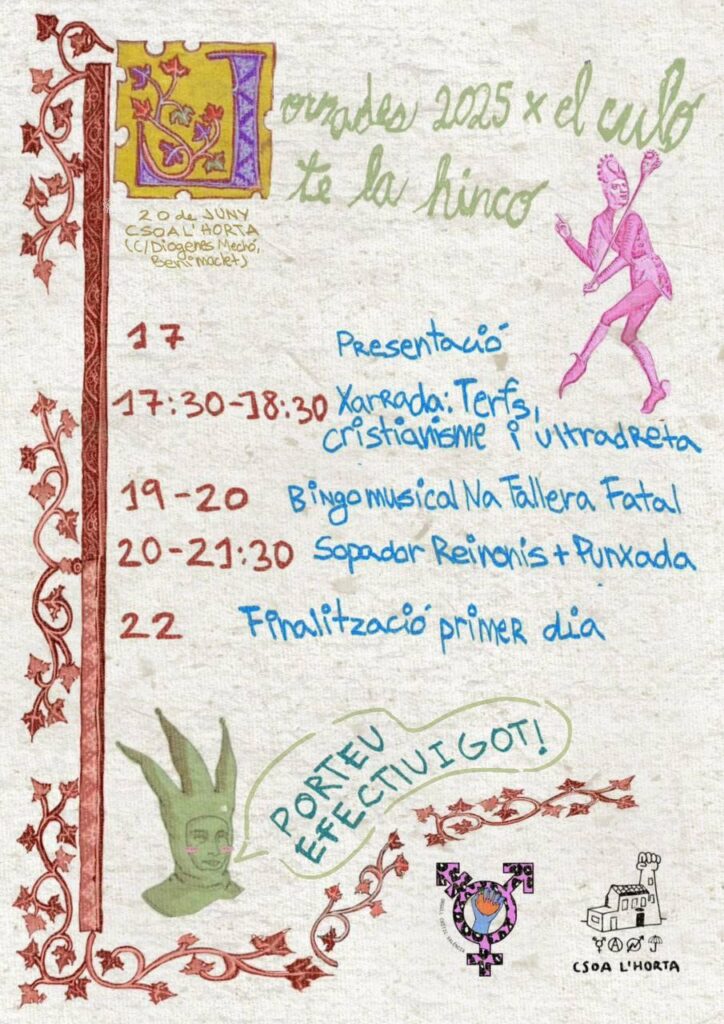 Jornades 2025 x el culo
te la hinco
20 de JUNY
CSOA L'HORTA
(C/Diogenes Mechó,
Benimaclet)
17 Presentació
17:30-18:30 Xarrada: Terfs,
cristianisme i ultradreta
19-20 Bingo musical Na Tallera Fatal
20-21:30 Sopador Reinonis + Punxada
22 Finalització primer dia
PORTEU
EFECTIU I GOT!
CSOA L'HORTA